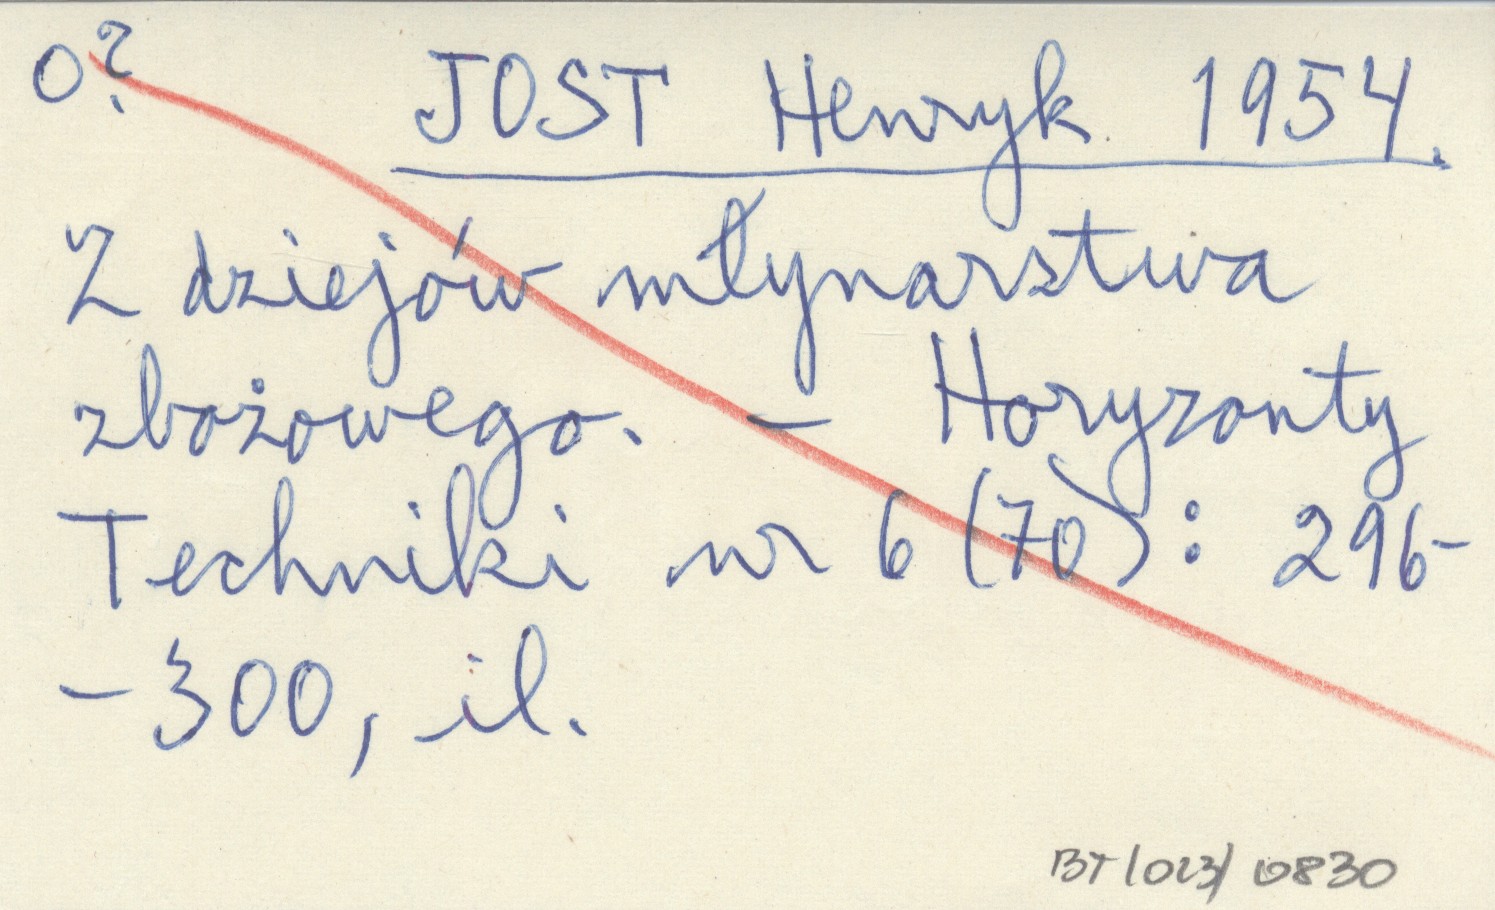 o? JOST Henryk 1954.
Z dziejów młynarstwa
zbożowego. – Horyzonty
Techniki nr 6 (70): 296-
-300, il.
BT/023/0830